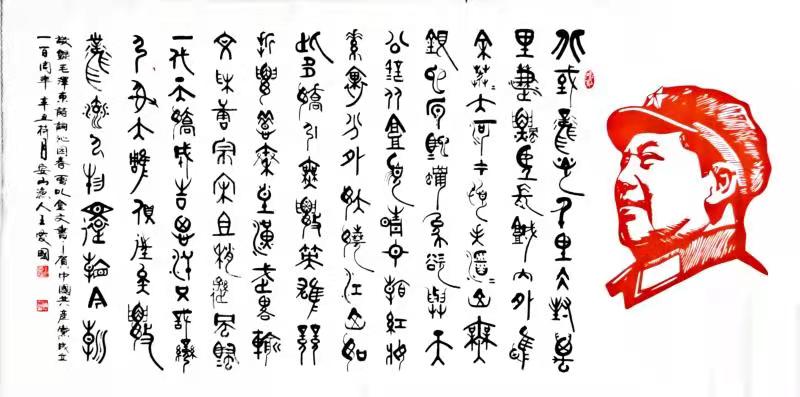 北國風光千里冰封萬
里雪飄望長城內外惟
余莽=大河上下頓失滔=山舞
銀蛇原馳蠟象欲與天
公試比高須晴日看紅妝
素裹分外妖嬈江山如
此多嬌引無數英雄競
折腰惜秦皇漢武略輸
文采唐宗宋祖稍遜風騷
一代天驕成吉思汗只識彎
弓射大雕俱往矣數
風流人物還看今朝
敬錄毛澤東詩詞沁園春雪以金文書之賀中國共產黨成立
一百周年辛丑荷月山人王國